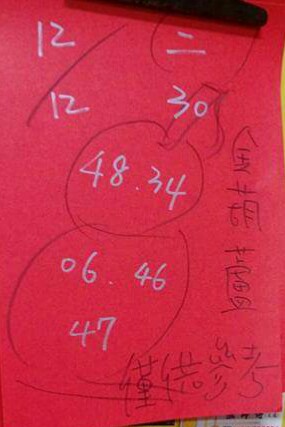 12 二
12 30
48.34
06.46
47
僅供參考